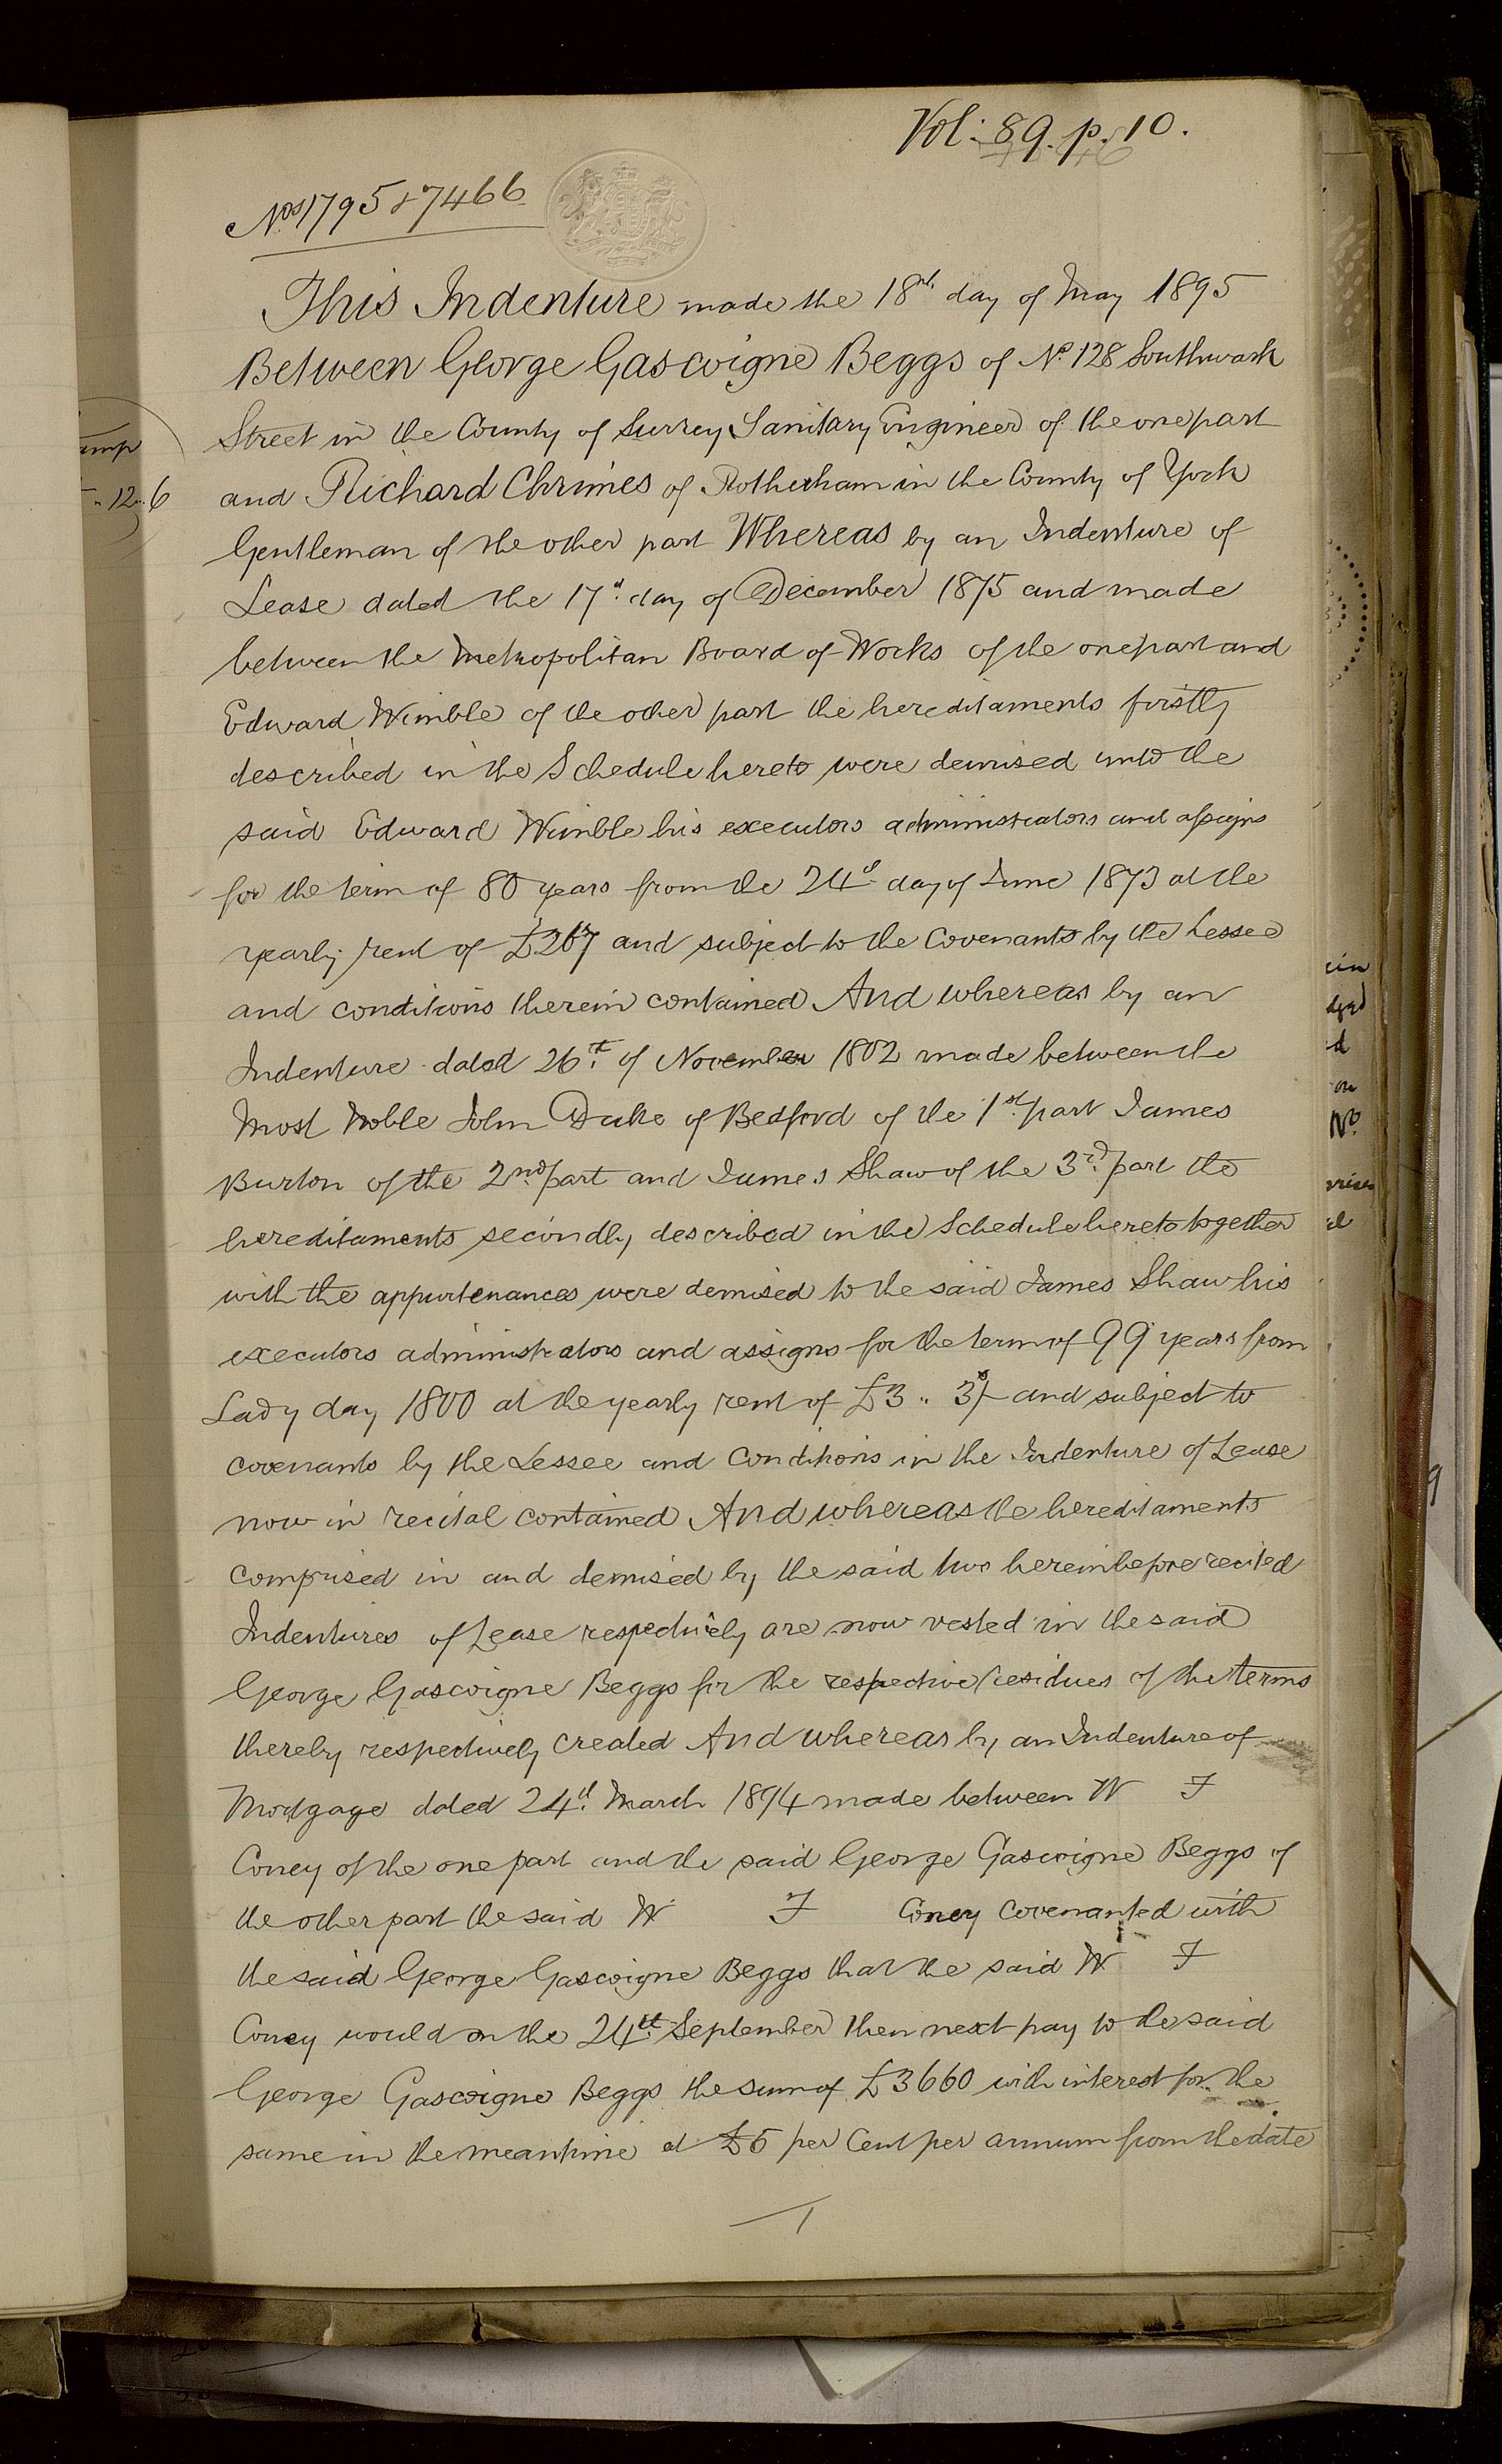 Vol: 89. p. 10.
Nos 1795 & 7466
This Indenture made the 18th day of May 1895
Between George Gascoigne Beggs of No. 128 Southwark
Street in the County of Surrey Sanitary Engineer of the one part
and Richard Chrimes of Rotherham in the County of York
Gentleman of the other part Whereas by an Indenture of
Lease dated the 17th day of December 1875 and made
between the Metropolitan Board of Works of the one part and
Edward Wimble of the other part the hereditaments firstly
described in the Schedule hereto were demised unto the
said Edward Wimble his executors administrators and assigns
for the term of 80 years from the 24th day of June 1873 at the
yearly rent of £267 and subject to the Covenants by the Lessee
and conditions therein contained And whereas by an
Indenture dated 26th of November 1802 made between the
Most Noble John Duke of Bedford of the 1st part James
Burton of the 2nd part and James Shaw of the 3rd part the
hereditaments secondly described in the Schedule hereto together
with the appurtenances were demised to the said James Shaw his
executors administrators and assigns for the term of 99 years from
Lady day 1800 at the yearly rent of £3 " 3/- and subject to
covenants by the Lessee and Conditions in the Indenture of Lease
now in recital contained And whereas the hereditaments
comprised in and demised by the said two hereinbefore recited
Indentures of Lease respectively are now vested in the said
George Gascoigne Beggs for the respective residues of the terms
thereby respectively created And whereas by an Indenture of
Mortgage dated 24th March 1894 made between W F
Coney of the one part and the said George Gascoigne Beggs of
the other part the said W F Coney Covenanted with
the said George Gascoigne Beggs that the said W F
Coney would on the 24th September then next pay to the said
George Gascoigne Beggs the sum of £3660 with interest for the
same in the meantime at £5 per Cent per annum from the date
1
12 " 6
No.